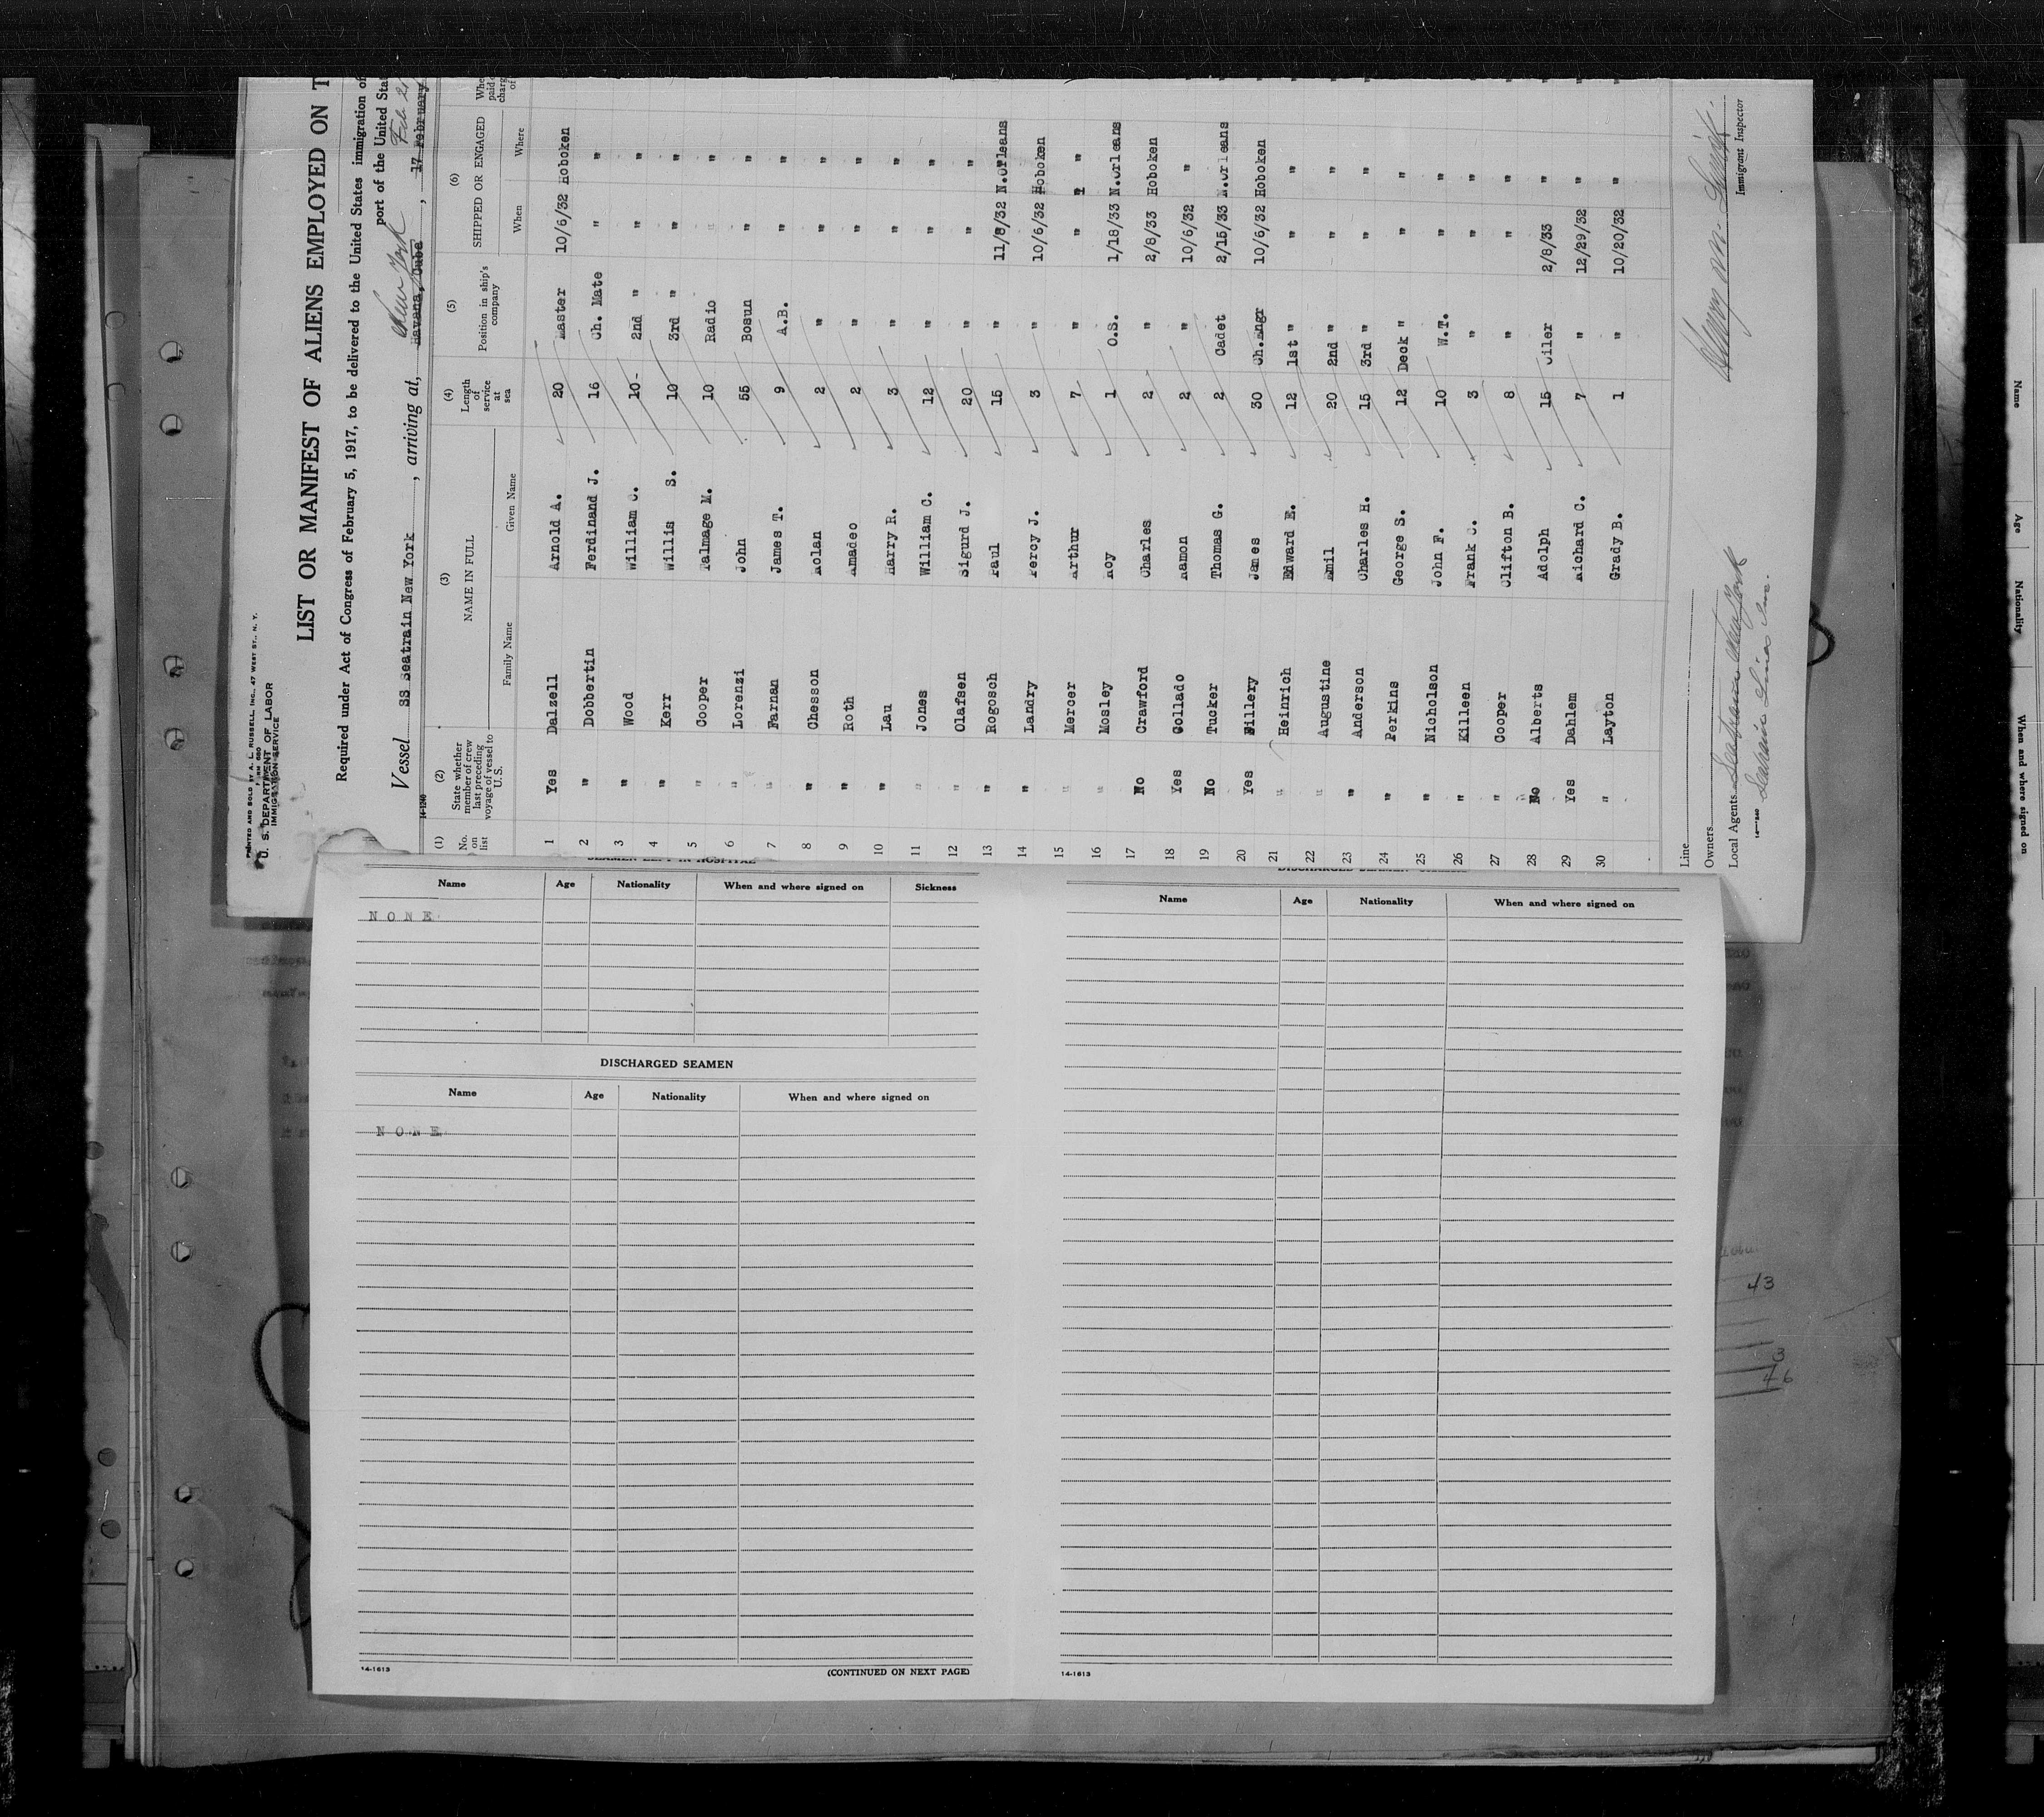 PRINTED AND SOLD BY A. L. RUSSELL, INC., 47 WEST ST., N. Y.
FORM 680
U. S. DEPARTMENT OF LABOR
IMMIGRATION SERVICE
LIST OR MANIFEST OF ALIENS EMPLOYED ON T
Required under Act of Congress of February 5, 1917, to be delivered to the United States immigration of
port of the United Sta
New York Feb 21
Vessel SS Seatrain New York, arriving at, Havana, Cuba, 17 February
14-1240
(1) (2) (3) (4) (5) (6)
No. on list
State whether member of crew last preceding voyage of vessel to U. S.
NAME IN FULL
Family Name Given Name
Length of service at sea
Position in ship's company
SHIPPED OR ENGAGED
When Where
1 Yes Dalzell Arnold A. 20 Master 10/6/32 Hoboken
2 " Dobbertin Ferdinand J. 16 Ch. Mate " "
3 " Wood William C. 10 2nd " " "
4 " Kerr Willis S. 10 3rd " " "
5 " Cooper Talmage M. 10 Radio " "
6 " Lorenzi John 55 Bosun " "
7 " Farnan James T. 9 A.B. " "
8 " Chesson Rolan 2 " " "
9 " Roth Amadeo 2 " " "
10 " Lau Harry R. 3 " " "
11 " Jones William C. 12 " " "
12 " Olafsen Sigurd J. 20 " " "
13 " Rogosch Paul 15 " 11/8/32 N.Orleans
14 " Landry Percy J. 3 " 10/6/32 Hoboken
15 " Mercer Arthur 7 " " "
16 " Mosley Roy 1 O.S. 1/18/33 N.Orleans
17 No Crawford Charles 2 " 2/8/33 Hoboken
18 Yes Collado Ramon 2 " 10/6/32 "
19 No Tucker Thomas G. 2 Cadet 2/15/33 N.Orleans
20 Yes Hillery James 30 Ch.Engr 10/6/32 Hoboken
21 " Heinrich Edward E. 12 1st " " "
22 " Augustine Emil 20 2nd " " "
23 " Anderson Charles H. 15 3rd " " "
24 " Perkins George S. 12 Deck " " "
25 " Nicholson John F. 10 W.T. " "
26 " Killeen Frank J. 3 " " "
27 " Cooper Clifton B. 8 " " "
28 No Alberts Adolph 15 Oiler 2/8/33 "
29 Yes Dahlem Richard C. 7 " 12/29/32 "
30 " Layton Grady B. 1 " 10/20/32 "
Line
Owners
Local Agents Seatrain New York
Seatrain Lines Inc.
14-1240
Immigrant Inspector
SEAMEN LEFT IN HOSPITAL
Name Age Nationality When and where signed on Sickness
NONE
DISCHARGED SEAMEN
Name Age Nationality When and where signed on
NONE
14-1613
(CONTINUED ON NEXT PAGE)
Name Age Nationality When and where signed on
14-1613
43
3
46
Name
Age
Nationality
When and where signed on